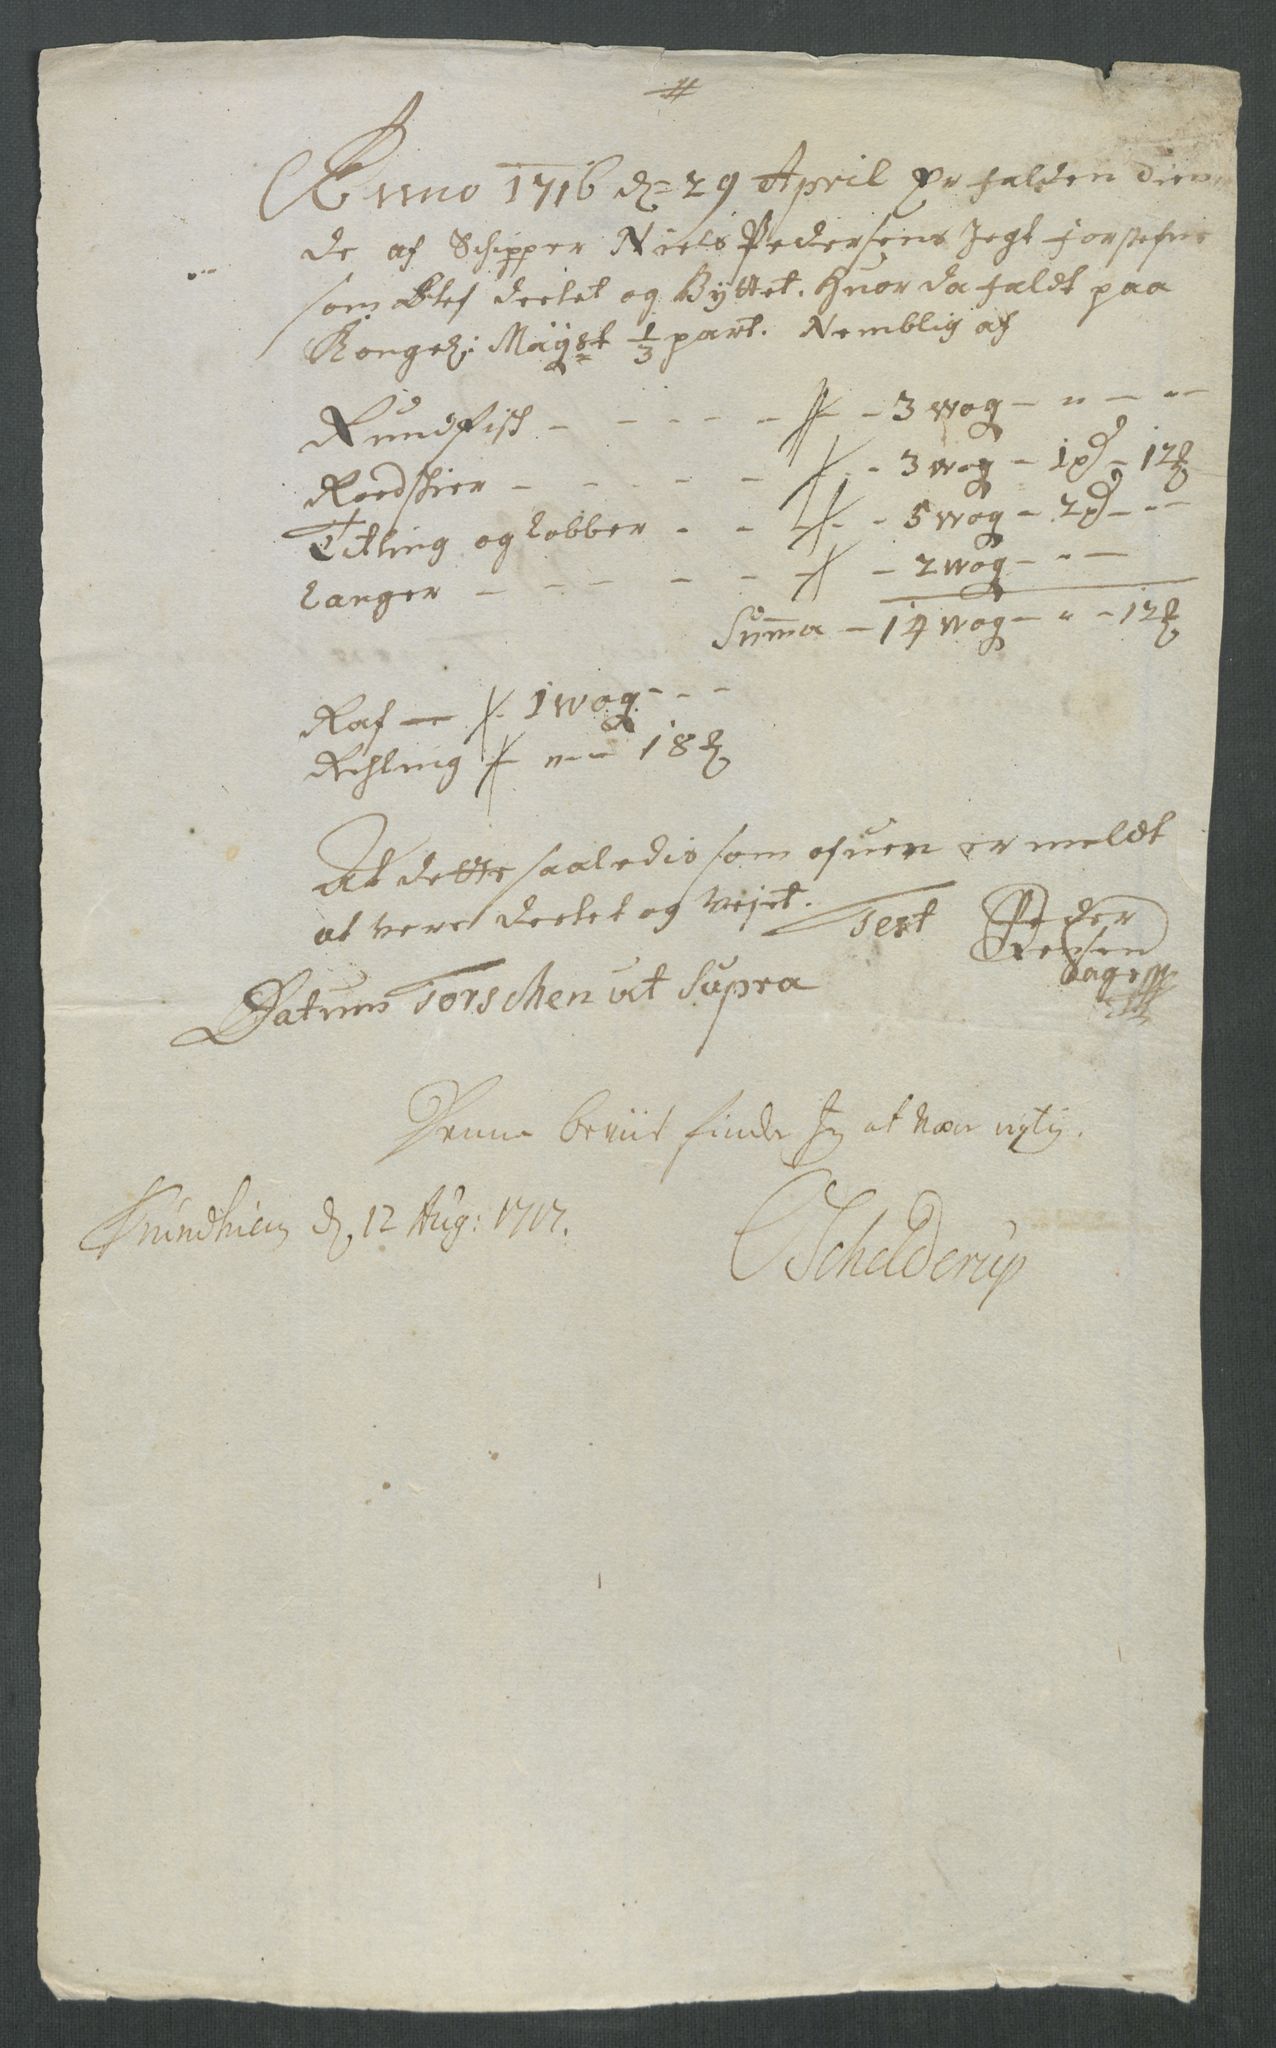 #
Anno 1716 d= 29 April Er falden Tien
de af Schipper Niels Pedersens Jegt
som blef deelet og Byttet. Huor da faldt paa
Kongel: Mayst 1/3 part. Nemblig af
Rundfisk - - - - - - 3 wog - " - " -
Rodskier - - - - - - 3 wog - 1 p - 12 ℔
Titling og Lobber - - - - 5 wog - 2 p - - -
Langer - - - - - - - 2 wog - " -
Summa - 14 wog - " - 12 ℔
Raf - 1 wog - - -
Rekling - " - 18 ℔
At dette saaledis som ofuen er meldt
at vere deelet og Vejet. Test Peder
Datum Torschen ut Supra
Denne beviis finder Jeg at vær rigtig.
Trundhiem d. 12 Aug: 1717.
Schelderup